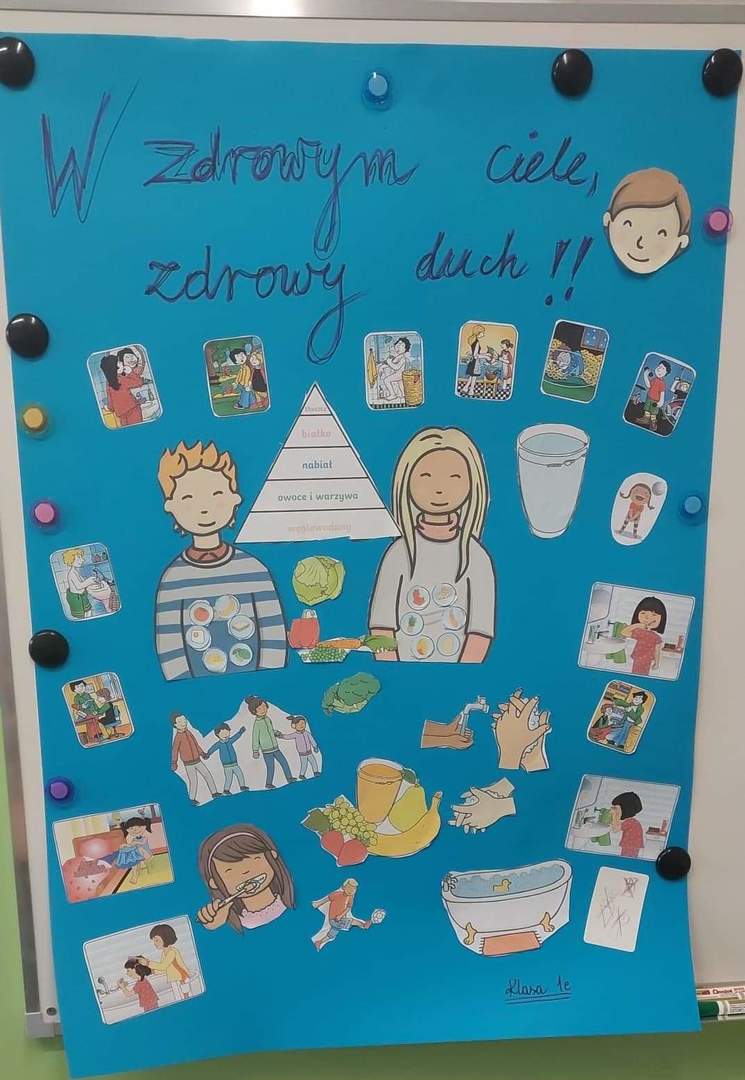 W zdrowym ciele,
zdrowy duch!!
tłuszcz
białko
nabiał
owoce i warzywa
węglowodany
Klasa 1e